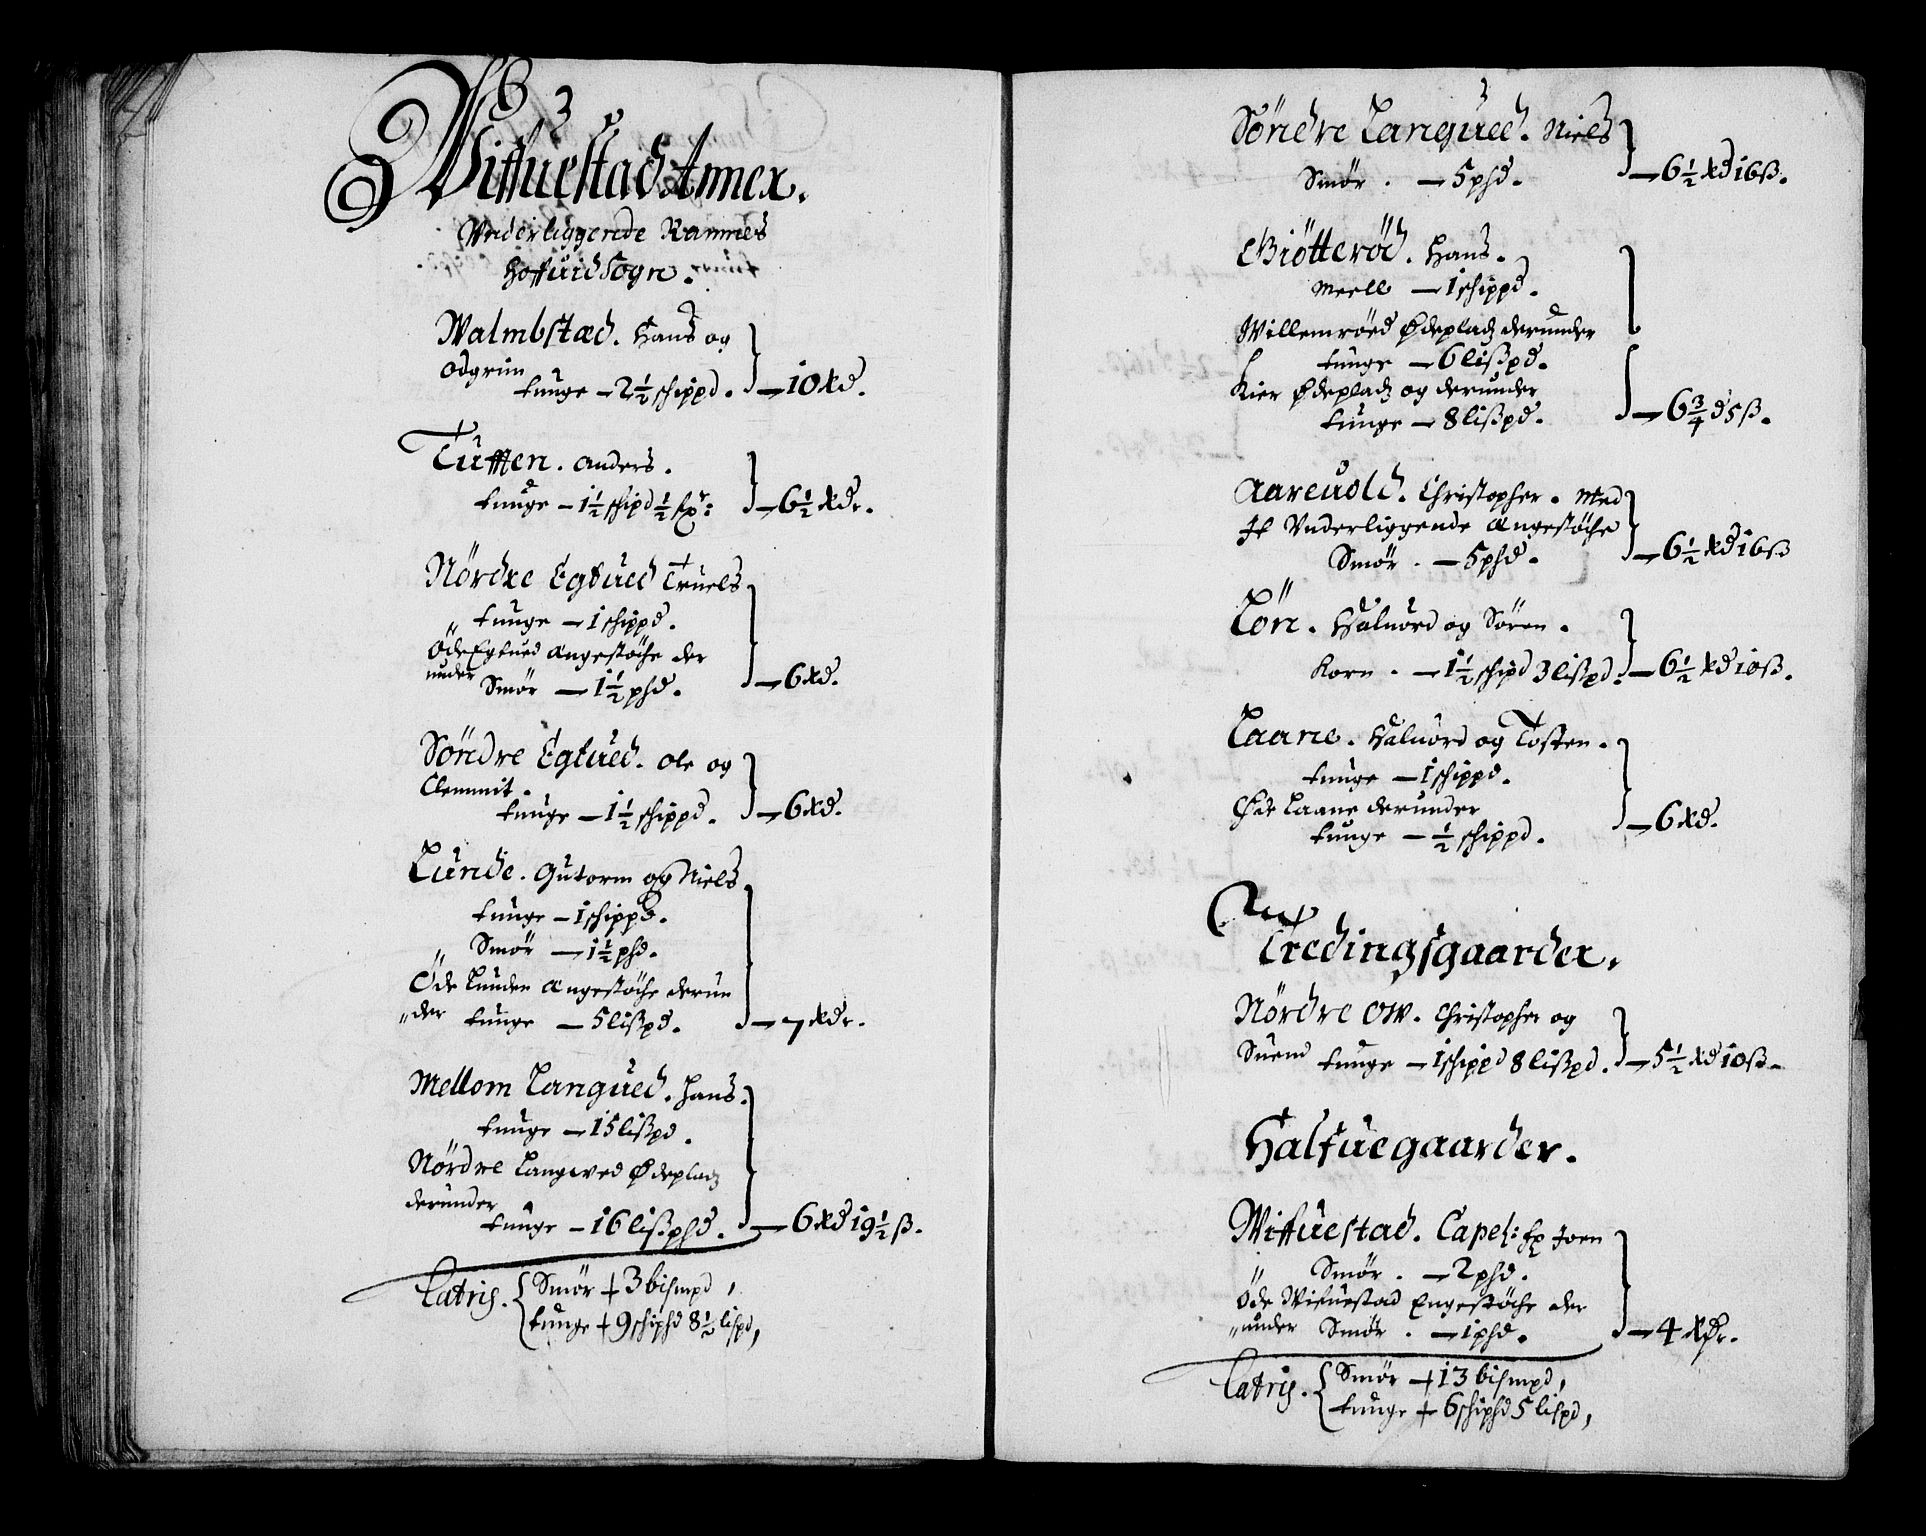 Wiffuestad Annex.
Vnderliggende Ramnes
Hoffuid Sogn.
Walmbstad. Hans og
Odgrim
tunge — 2½ schippd. — 10 Rd.
Tufften. Anders.
tunge — 1½ schipd ½ — 6½ Rdr.
Nördre Egtued Truels
tunge — 1 schippd.
Öde Egtued Angestöche der
under Smör — 1½ phd. — 6 Rd.
Söndre Egtued. Ole og
Clemmit.
tunge — 1½ schippd. — 6 Rd.
Lunde. Gutorm og Niels
tunge — 1 schippd.
Smör — 1½ phd.
Öde Lunden Angestöche derun
der tunge — 5 lißpd. — 7 Rdr.
Mellom Langued. Hans.
tunge — 15 lißpd.
Nördre Langwed Ödeplads
derunder
tunge — 16 lißphd. — 6 Rd 19½ ß.
Latris. Smör + 3 bismpd,
tunge + 9 schiphd 8½ lispd,
Söndre Langued. Niels
Smör. — 5 phd. — 6½ Rd 16 ß.
Giötteröd. Hans.
Meell — 1 schippd.
Willemröed Ödeplads derunder
tunge — 6 lißpd.
Kier Ödeplads og derunder
tunge — 8 lißpd. — 6¾ d 5 ß.
Aareuold. Christopher. Med
It Vnderliggende Angestöche
Smör. — 5 phd. — 6½ Rd 16 ß
Lön. Haluord og Sören.
Korn. — 1½ schipd 3 lißpd. — 6½ Rd 10 ß.
Laane. Haluord og Tosten.
tunge — 1 schippd.
Öde Laane derunder
tunge — ½ schippd. — 6 Rd.
Tredingsgaarder.
Nördre Ow. Christopher og
Suend tunge — 1 schippd 8 lißpd. — 5½ Rd 10 ß.
Halfuegaarder.
Wiffuestad. Capel: Joen
Smör. — 2 phd.
Öde Wifuestad Engestöche der
under Smör. — 1 phd. — 4 Rdr.
Latris. Smör + 13 bismpd,
tunge + 6 schiphd 5 lispd,